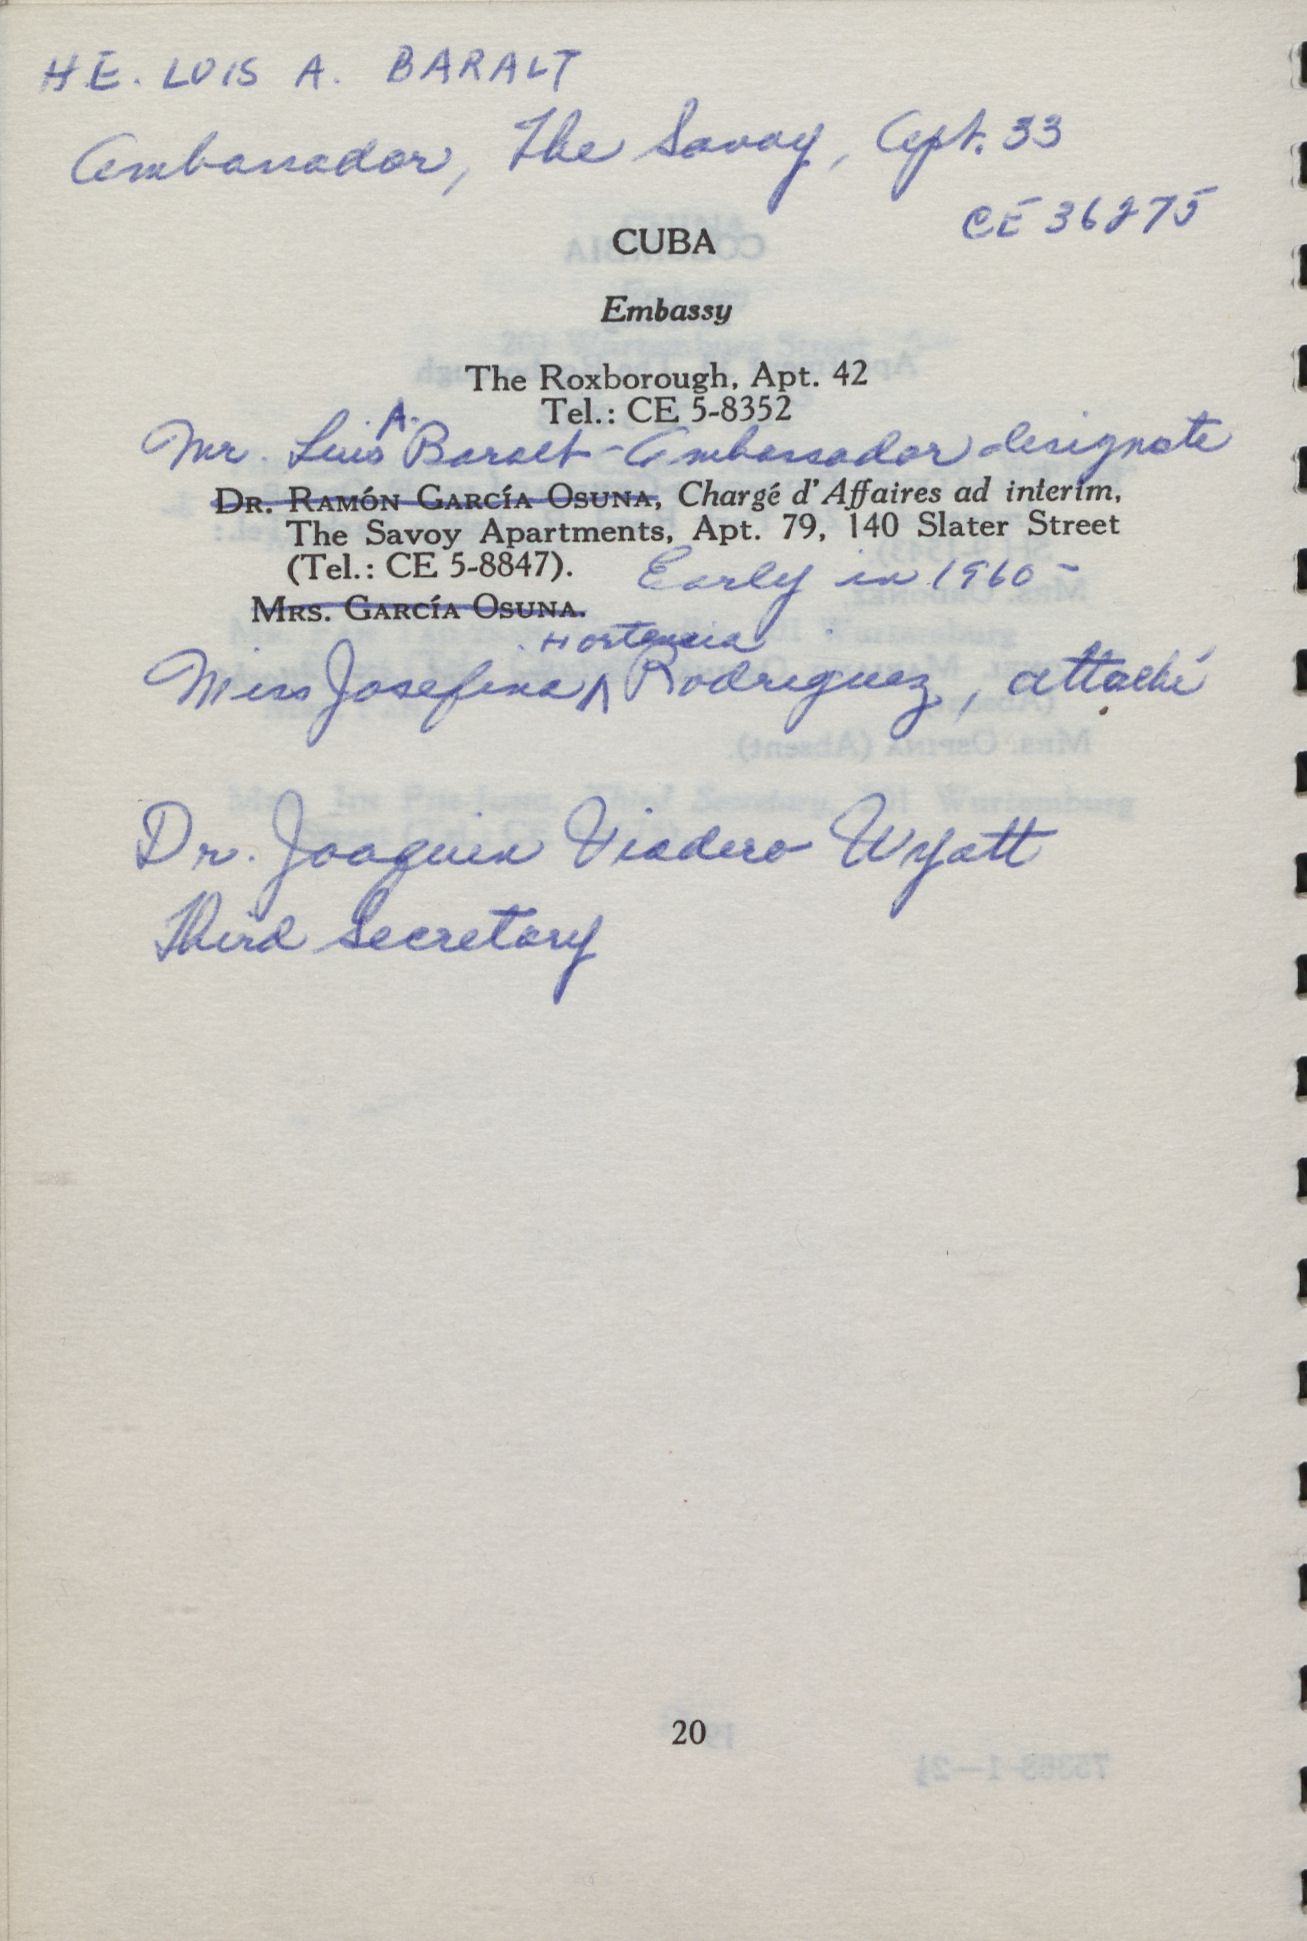 H.E. LUIS A. BARALT
Ambassador, The Savoy, Apt. 33
CE 36275
CUBA
Embassy
The Roxborough, Apt. 42
Tel.: CE 5-8352
Mr. Luis A. Baralt - Ambassador designate
DR. RAMÓN GARCÍA OSUNA, Chargé d'Affaires ad interim,
The Savoy Apartments, Apt. 79, 140 Slater Street
(Tel.: CE 5-8847).
Early in 1960 -
MRS. GARCÍA OSUNA.
Hortencia
Miss Josefina ^ Rodriguez, attaché
Dr. Joaquin Viadero Wyatt
Third Secretary
20